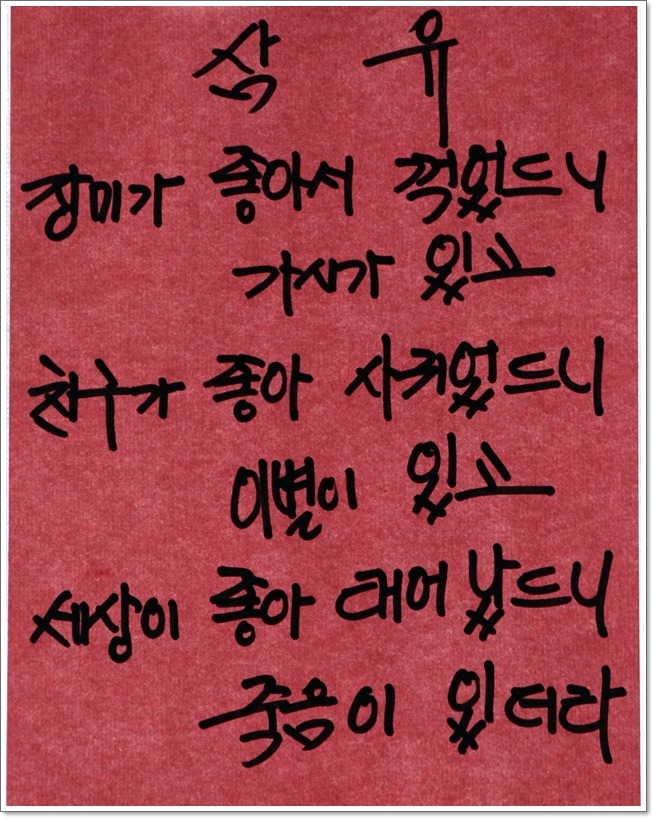 삶 유
장미가 좋아서 꺽었드니
가시가 있고
친구가 좋아 사귀었드니
이별이 있고
세상이 좋아 태어 났드니
죽음이 있더라